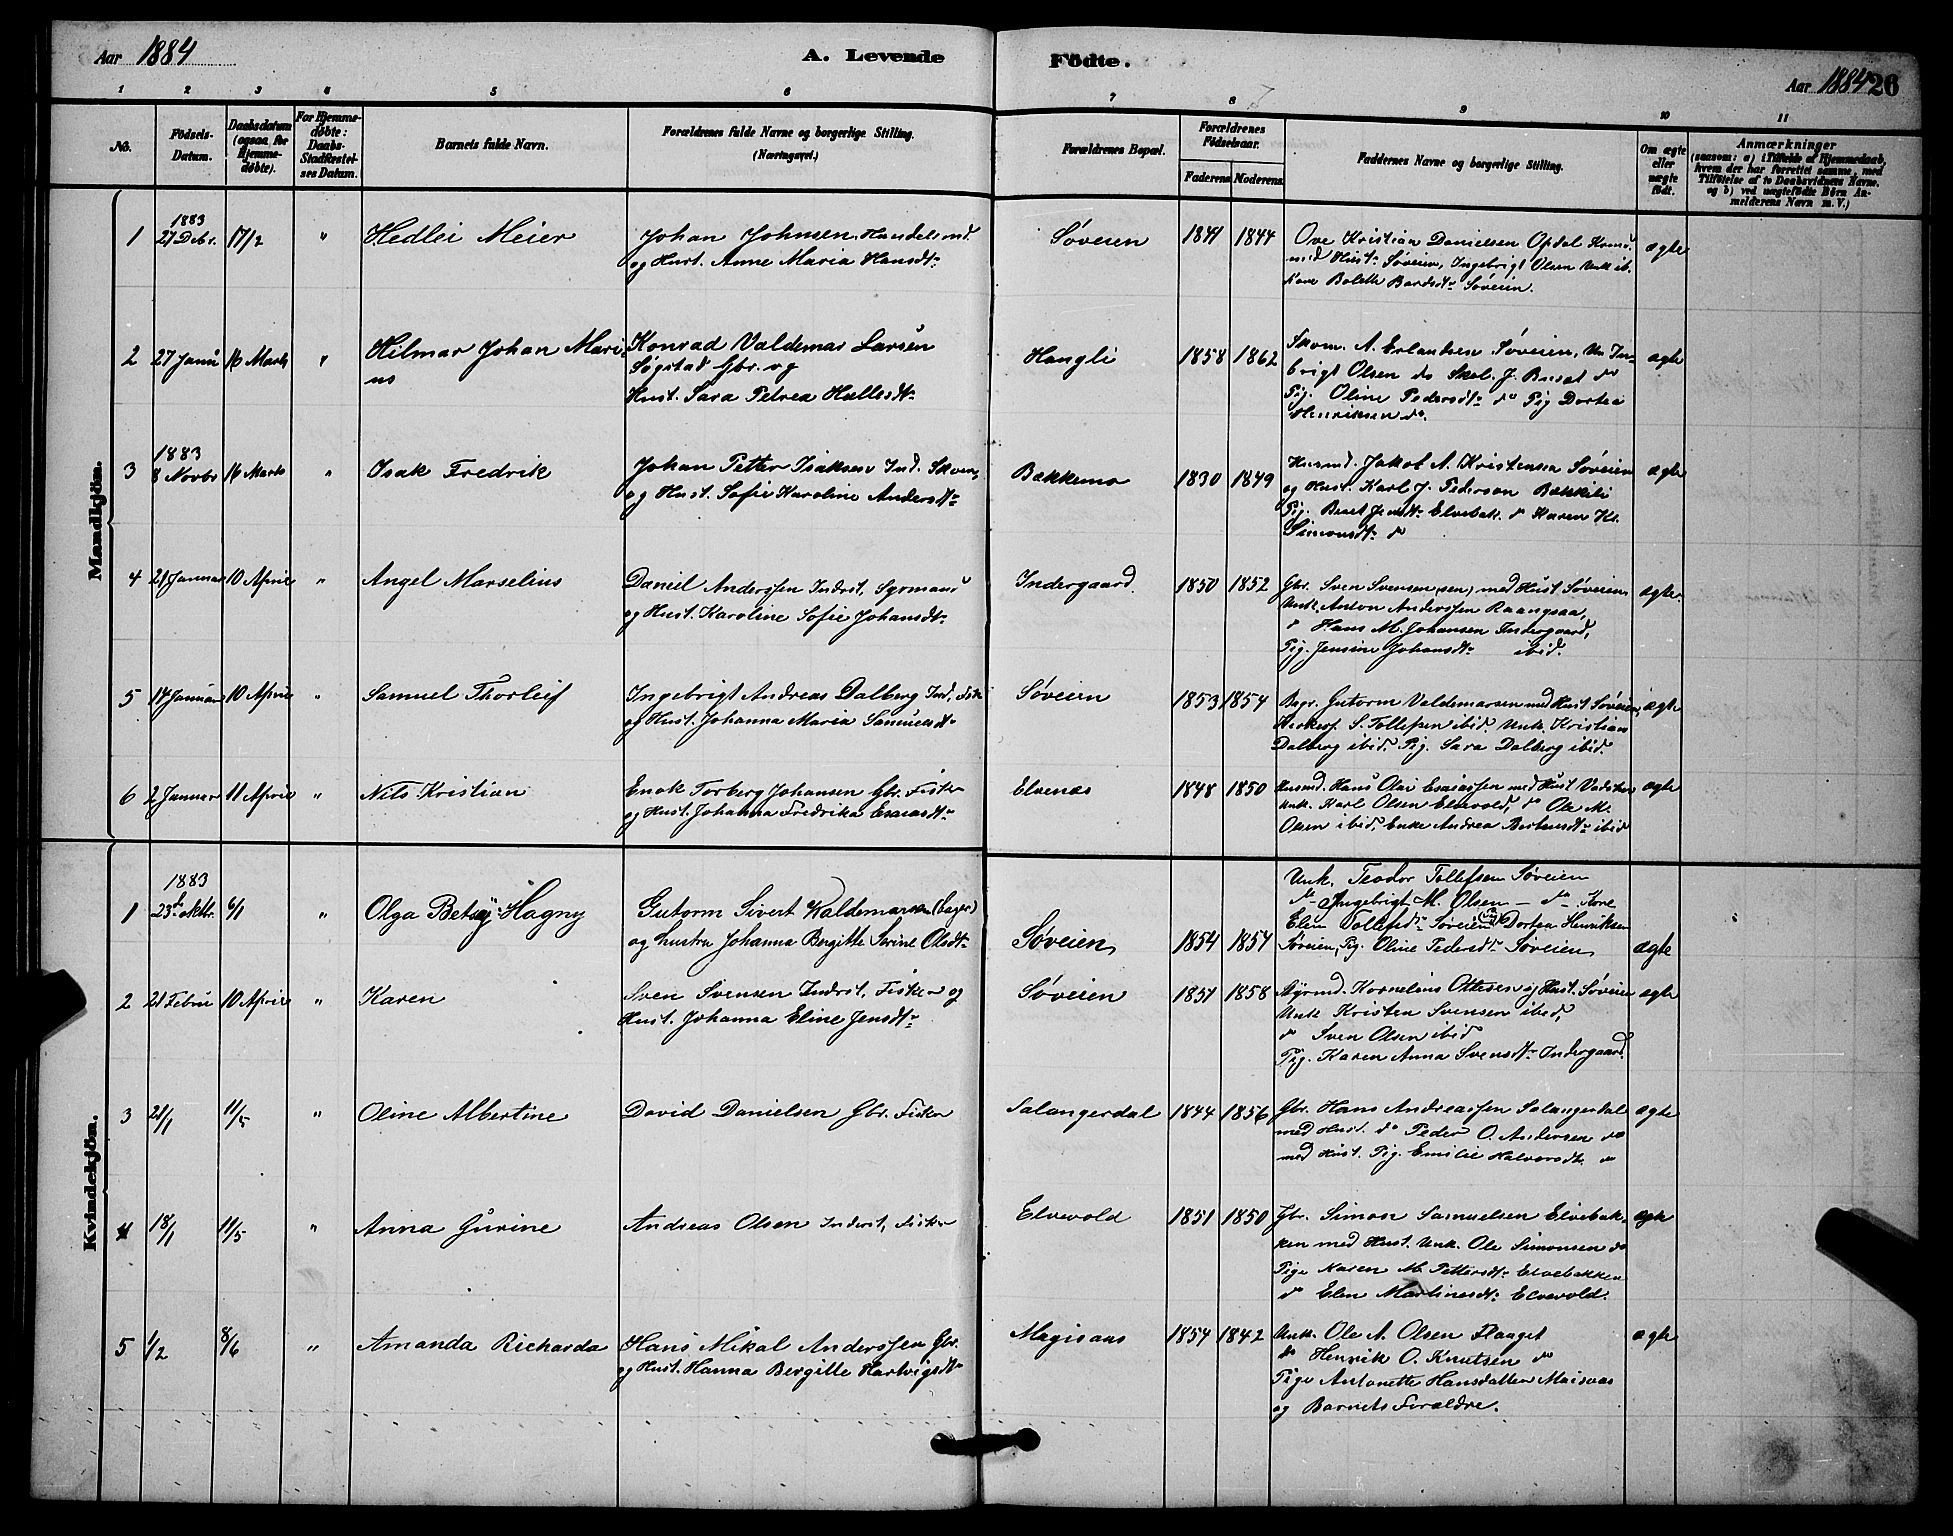 Aar 1884
A. Levende Födte.
Aar 1884 26
1 2 3 4 5 6 7 8 9 10 11
No.
Födsels-Datum.
Daabsdatum (ogsaa for Hjemmedöbte).
For Hjemmedøbte: Daabs-Stadfæstelses Datum.
Barnets fulde Navn.
Forældrenes fulde Navne og borgerlige Stilling. (Næringsvei.)
Forældrenes Bopæl.
Forældrenes Födselsaar.
Faderens Moderens
Faddernes Navne og borgerlige Stilling.
Om ægte eller uægte födt.
Anmærkninger
(saasom: a) i Tilfælde af Hjemmedaab, hvem der har forrettet samme, med Tilföielse af to Daabsvidners Navne. og b) ved uægtefödte Börn Anmelderens Navn m. V.)
Mandkjön.
1 1883 27 Debr. 17/2 " Hedlei Meier
Johan Johnsen, Handelsmd.
og Hust. Anne Maria Hansdtr
Søveien 1841 1844
Ove Kristian Danielsen Opdal
med Hustr Søveien, Ingebrigt Olsen Unk ib.
Kone Bolette Bardsdtr Søveien.
ægte
2 27 Janu 16 Marts " Hilmar Johan Mari
us
Konrad Valdemar Larsen
Søgstad Gbr. og
Hust. Sara Petrea Hallesdtr
Hangli 1858 1862
Skom. A. Erlandsen Søveien, Un In-
brigt Olsen do Skol. J. Busat do
Pig. Oline Pedersdtr do Pig Dortea
Henriksen do.
ægte
3 1883 8 Novbr 16 Marts " Isak Fredrik
Johan Petter Isaksen Ind. Skom
og Hust. Sofie Karoline Andersdtr
Bækkemo 1830 1849
Husmd. Jakob A. Kristensen Søveien
og Hust. Karl J. Pederson Bækkeli
Pig. Beret Jensdtr Elvebak. do Karen Kr.
Simonsdtr do
ægte
4 21 Januar 10 April " Angel Marselius
Daniel Anderssen Indrst,
og Hust. Karoline Sofie Johansdtr
Indergaard. 1850 1852
Gbr. Sven Svensen (sen) med Hust Søveien
Unk. Anton Anderssen Raangsaa,
do Hans M. Johansen Indergaard,
Pig. Jensine Johansdtr ibid.
ægte.
5 14 Januar 10 April " Samuel Thorleif
Ingebrigt Andreas Dalberg Ind. Fisk
og Hust. Johanna Maria Samuelsdtr
Søveien 1853 1854
Bagr. Gutorm Valdemarsen med Hust Søveien,
S. Tollefsen ibid. Unk. Kristian
Dalberg ibid. Pig. Sara Dalberg ibid.
ægte
6 2 Januar 11 April " Nils Kristian
Enok Torberg Johansen Gbr. Fisker
og Hust. Johanna Fredrika Esaiasdtr
Elvenæs 1848 1850
Husmd. Hans Olai Esaiassen med Hust
Unk. Karl Olsen Elvevold, do Ole M.
Olsen ibid, Enke Andrea ibid
ægte
Kvindekjön.
1 1883 23 Oktbr. 6/1 " Olga Betsy Hagny
Gutorm Sivert Waldemarsen (bager)
og hustru Johanna Bergitte Serine Olsdtr
Søveien 1854 1854
Unk. Teodor Tollefsen Søveien
do Ingebrigt M. Olsen - do - Kone
Elen Tollefsdtr Søveien Dortea Henriksen
Søveien, Pig. Oline Pedersdtr Søveien
ægte
2 21 Febru 10 April " Karen
Sven Svensen Indrst, Fisker og
Hust. Johanna Eline Jensdtr
Søveien 1851 1858
Styrmd. Kornelius Ottesen og Hust. Søveien
Unk Kristen Svensen ibid,
do Sven Olsen ibid
Pig. Karen Anna Svensdtr Indergaard.
ægte
3 21/1 11/5 " Oline Albertine
David Danielsen Gbr. Fisker
Salangerdal 1844 1856
Gbr. Hans Andreassen Salangerdal
med Hust. do Peder O. Andersen do
med Hust. Pig. Emilie Halvorsdtr do
ægte
4 18/1 11/5 " Anna Gurine
Andreas Olsen Inderst, Fisker
Elvevold 1851 1850
Gbr. Simon Samuelsen Elvebak-
ken med Hust. Unk. Ole Simonsen do
Pige Karen M. Pettersdtr Elvebakken
do Elen Martinesdtr Elvevold.
ægte
5 1/2 8/6 " Amanda Richarda
Hans Mikal Anderssen Gbr.
og Hust. Hanna Bergitte Hartvigsdtr
Magisaas 1854 1842
Unk. Ole A. Olsen Flaaget
do Henrik O. Knutsen do
Pige Antonette Hansdatter Maisaas
og Barnets Forældre.
ægte